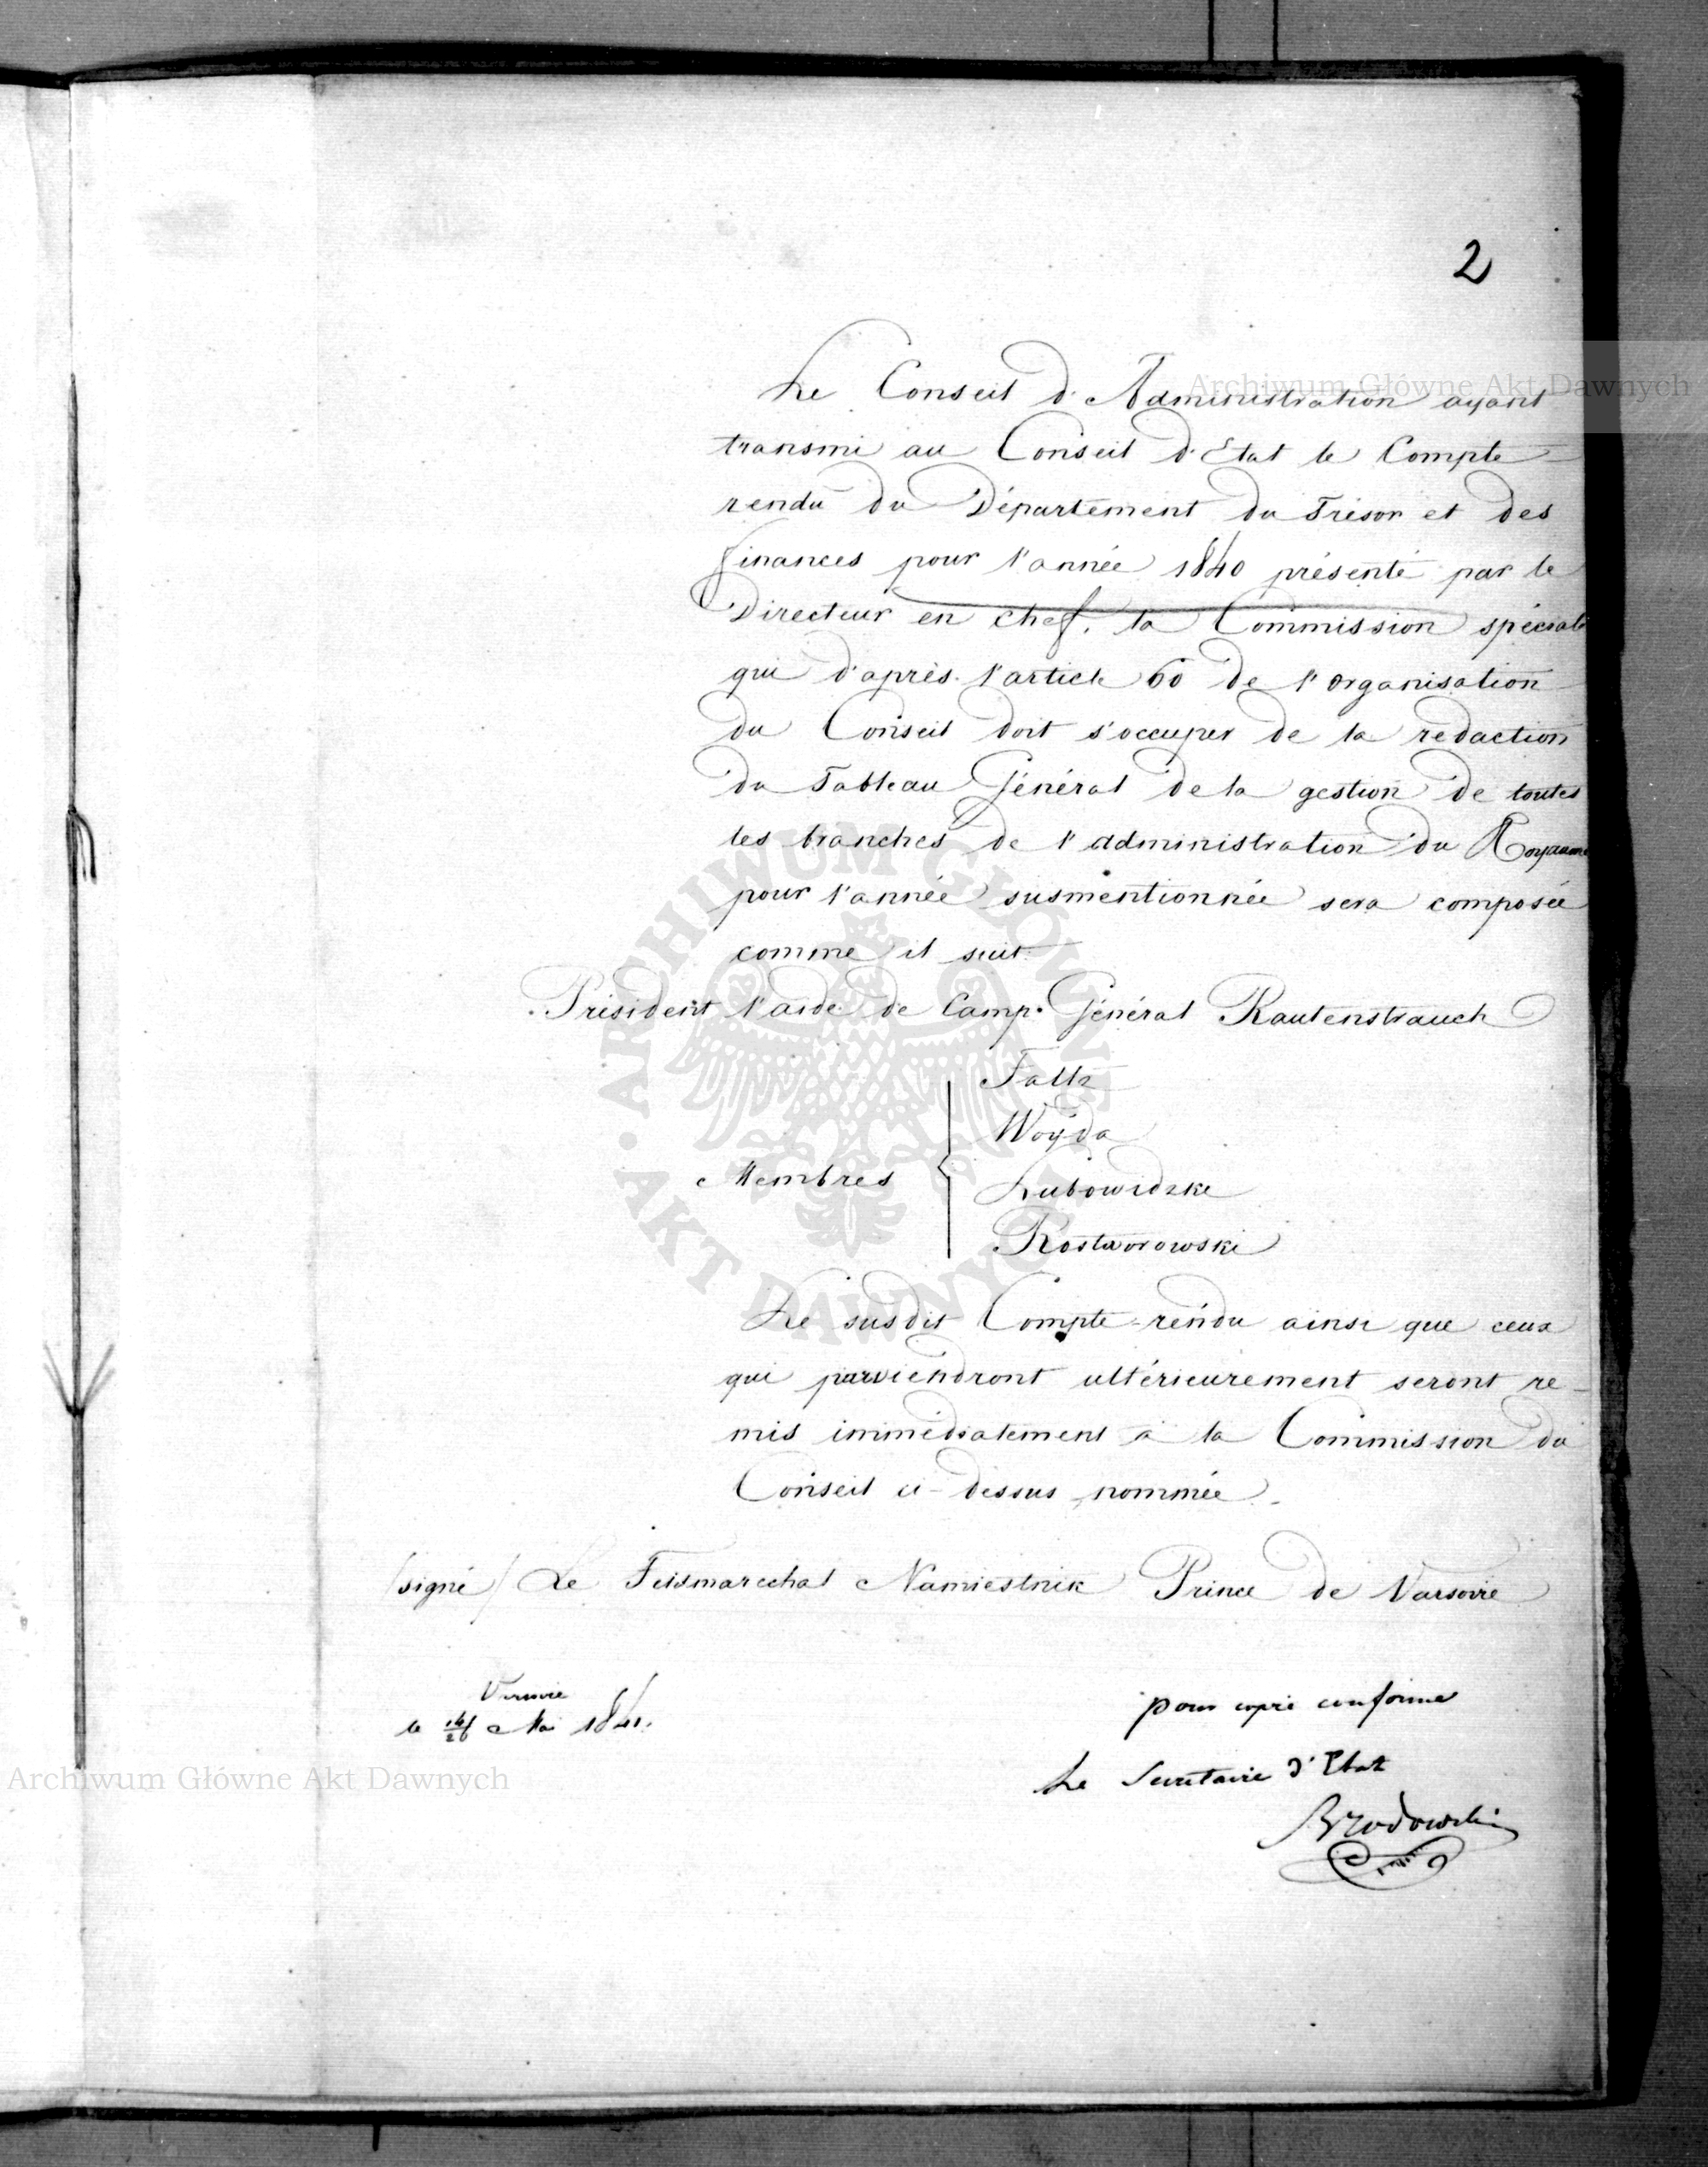 2
Le Conseil d'Administration ayant
transmi au Conseil d'Etat le Compte
rendu du Département du Trésor et des
finances pour l'année 1840 présenté par le
Directeur en chef, la Commission spéciale
qui d'après l'article 60 de l'organisation
du Conseil doit s'occuper de la redaction
du Tableau Général de la gestion de toutes
les branches de l'administration du Royaume
pour l'année susmentionnée sera composée
comme il suit:
Président l'aide de Camp. Général Rautenstrauch
Faltz
Woyda
Membres
Lubowidzki
Rostworowski
Le susdit Compte-rendu ainsi que ceux
qui parviendront ultérieurement seront re-
mis immédiatement à la Commission du
Conseil ci-dessus nommée.
/signé/ Le Feldmarechal Namiestnik Prince de Varsovie
Varsovie
le 14/26 Mai 1841.
pour copie conforme
Le Secretaire d'Etat
Brzodowski
Archiwum Główne Akt Dawnych
Archiwum Główne Akt Dawnych
ARCHIWUM GŁÓWNE • AKT DAWNYCH •